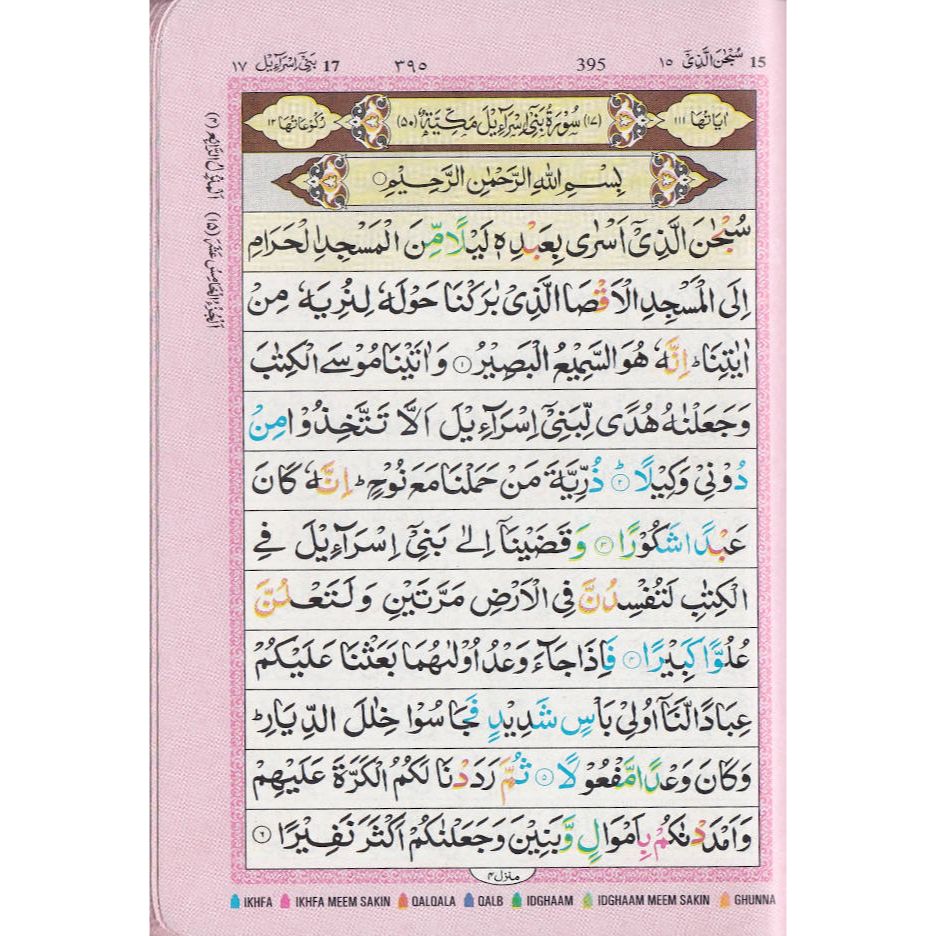 15 سُبْحٰنَ الَّذِیْٓ ١٥ 395 ٣٩٥ 17 بَنِیْٓ اِسْرَآءِیْل ١٧
اٰیَاتُهَا ١١١ (١٧) سُوْرَةُ بَنِیْٓ اِسْرَآءِیْلَ مَكِّیَّةٌ (٥٠) رُكُوْعَاتُهَا ١٢
بِسْمِ اللهِ الرَّحْمٰنِ الرَّحِیْمِ
سُبْحٰنَ الَّذِیْٓ اَسْرٰی بِعَبْدِهٖ لَیْلًا مِّنَ الْمَسْجِدِ الْحَرَامِ
اِلَی الْمَسْجِدِ الْاَقْصَا الَّذِیْ بٰرَكْنَا حَوْلَهٗ لِنُرِیَهٗ مِنْ
اٰیٰتِنَا ؕ اِنَّهٗ هُوَ السَّمِیْعُ الْبَصِیْرُ ١ وَاٰتَیْنَا مُوْسَی الْكِتٰبَ
وَجَعَلْنٰهُ هُدًی لِّبَنِیْٓ اِسْرَآءِیْلَ اَلَّا تَتَّخِذُوْا مِنْ
دُوْنِیْ وَكِیْلًا ؕ ٢ ذُرِّیَّةَ مَنْ حَمَلْنَا مَعَ نُوْحٍ ؕ اِنَّهٗ كَانَ
عَبْدًا شَكُوْرًا ٣ وَقَضَیْنَآ اِلٰی بَنِیْٓ اِسْرَآءِیْلَ فِی
الْكِتٰبِ لَتُفْسِدُنَّ فِی الْاَرْضِ مَرَّتَیْنِ وَلَتَعْلُنَّ
عُلُوًّا كَبِیْرًا ٤ فَاِذَا جَآءَ وَعْدُ اُوْلٰىهُمَا بَعَثْنَا عَلَیْكُمْ
عِبَادًا لَّنَآ اُولِیْ بَاْسٍ شَدِیْدٍ فَجَاسُوْا خِلٰلَ الدِّیَارِ ؕ
وَكَانَ وَعْدًا مَّفْعُوْلًا ٥ ثُمَّ رَدَدْنَا لَكُمُ الْكَرَّةَ عَلَیْهِمْ
وَاَمْدَدْنٰكُمْ بِاَمْوَالٍ وَّبَنِیْنَ وَجَعَلْنٰكُمْ اَكْثَرَ نَفِیْرًا ٦
منزل ٤
اَلْجُزْءُ الْخَامِسُ عَشَرَ (١٥) اَلْمَنْزِلُ الرَّابِعُ (٤)
IKHFA IKHFA MEEM SAKIN QALQALA QALB IDGHAAM IDGHAAM MEEM SAKIN GHUNNA